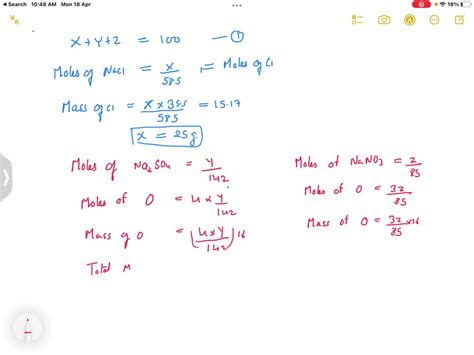 Search 10:48 AM Mon 18 Apr 18%
x + y + z = 100 — ①
Moles of NaCl = x/58.5 = Moles of Cl
Mass of Cl = x × 35.5/58.5 = 15.17
x = 25g
Moles of Na2SO4 = y/142
Moles of O = 4 × y/142
Mass of O = (4 × y/142) 16
Total M
Moles of NaNO3 = z/85
Moles of O = 3z/85
Mass of O = 3z/85 × 16